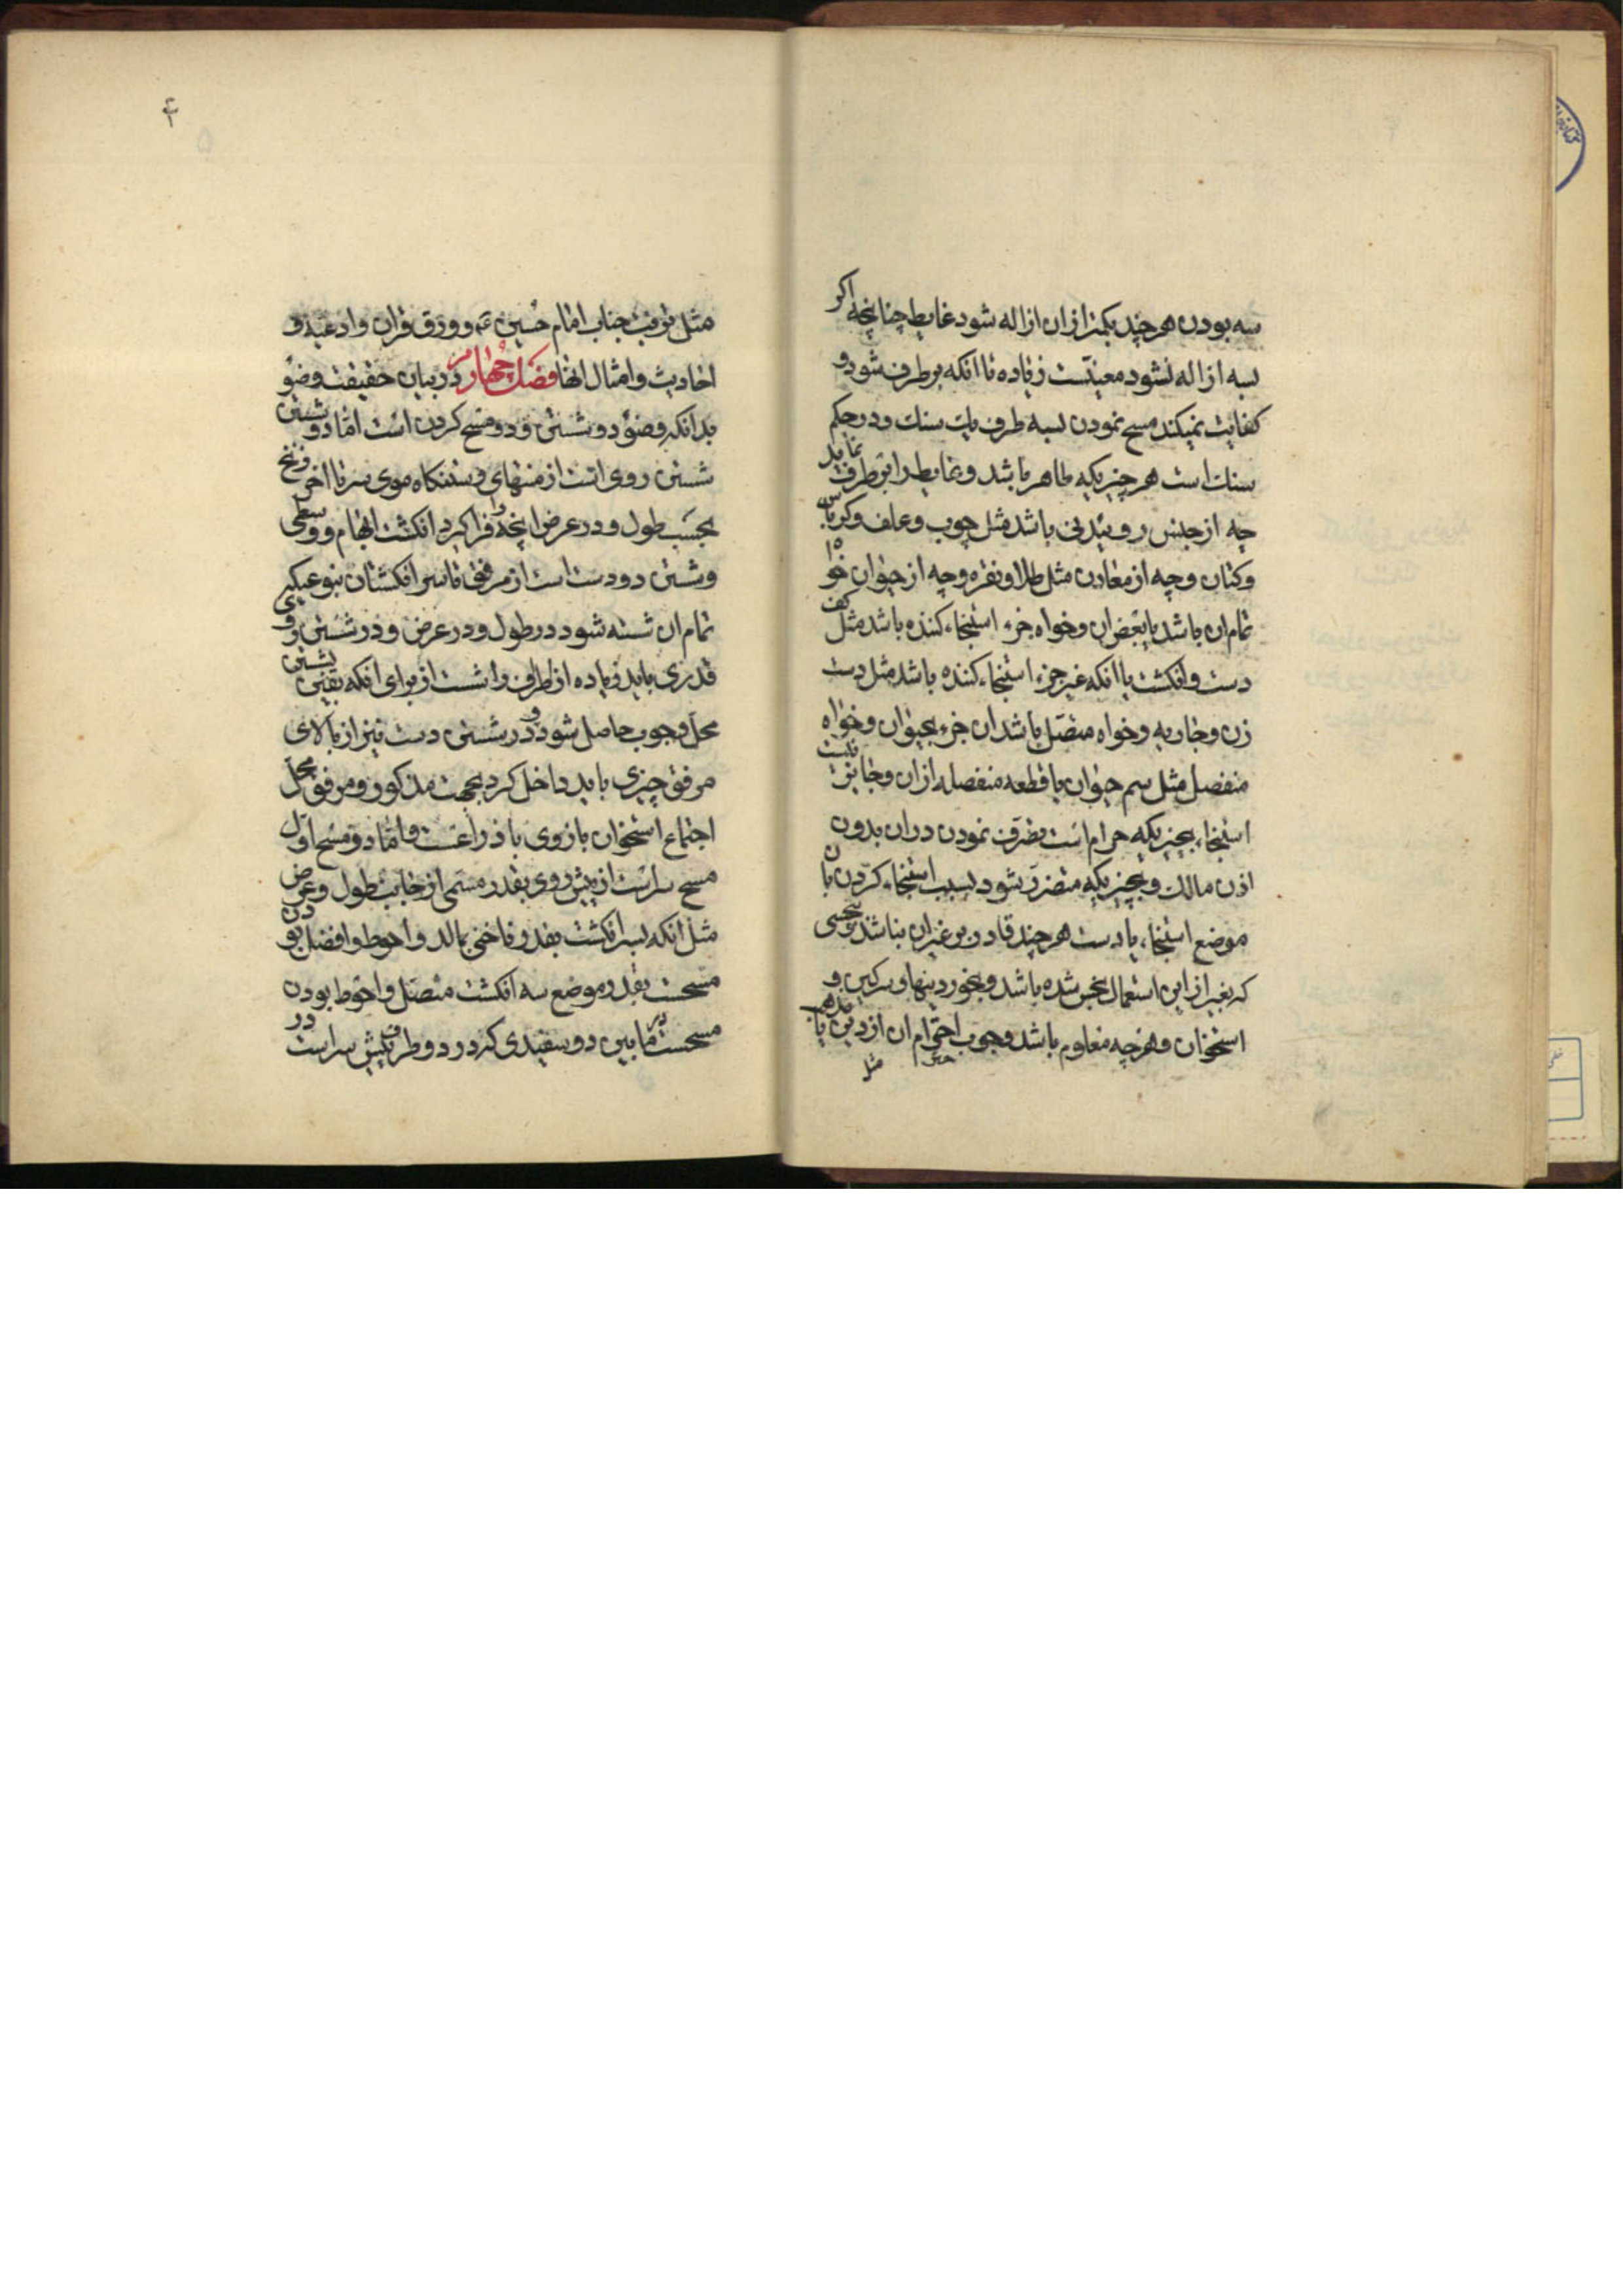 سه بودن هر چند بکمتر از ان ازاله شود غایط چنانچه اکر
بسه ازاله نشود معینست زیاده تا آنکه برطرف شود و
کفایت نمیکند مسح نمودن بسه طرف یک سنك و در حکم
سنك است هر چیزیکه طاهر باشد و غایط را برطرف نماید
چه از جنس روئیدنی باشد مثل چوب و علف و کرباس
و کتان و چه از معادن مثل طلا و نقره و چه از حیوان خواه
تمام ان باشد یا بعض ان و خواه جزء استنجاء کننده باشد مثل کف
دست و انکشت یا آنکه غیر جزء استنجاء کننده باشد مثل دست
زن و جاریه و خواه متصل باشد ان جزء بحیوان و خواه
منفصل مثل سم حیوان یا قطعه منفصله از ان و جایز نیست
استنجاء بچیزیکه حرام است تصرف نمودن در ان بدون
اذن مالك و بچیزیکه متضرر بشود بسبب استنجاء کردن بان
موضع استنجاء یا دست هر چند قادر بر غیر ان نباشد و بنجسی
که بغیر از این استعمال نجس شده باشد و بخوردینها و سرکین و
استخوان و هر چه معلوم باشد وجوب احترام ان از دین یا مذهب
مثل
۴
مثل تربت جناب امام حسین ع و ورق قران و ادعیه و
احادیث و امثال انها فصل چهارم در بیان حقیقت وضو
بدانکه وضو دو شستن و دو مسح کردن است اما دو شستن
شستن روی است از منتهای رستنکاه موی سر تا اخر زنخ
بحسب طول و در عرض انچه را فرا کیرد انکشت ابهام و وسطی
و شستن دو دست است از مرفق تا سر انکشتان بنوعیکه
تمام ان شسته شود در طول و در عرض و در شستن روی
قدری باید زیاده از اطراف را شست از برای آنکه یقین بشستن
محل وجوب حاصل شود و در شستن دست نیز از بالای
مرفق چیزی باید داخل کرد بجهت مذکور و مرفق محل
اجتماع استخوان بازوی با ذراعست و اما دو مسح اول
مسح سر است از پیش روی بقدر مسمی از جانب طول و عرض
مثل آنکه بسر انکشت بقدر ناخنی بمالد و احوط و افضل بودن
مسحست بقدر موضع سه انکشت متصل و احوط بودن
مسحست در ما بین دو سفیدی که در دو طرف پیش سر است در